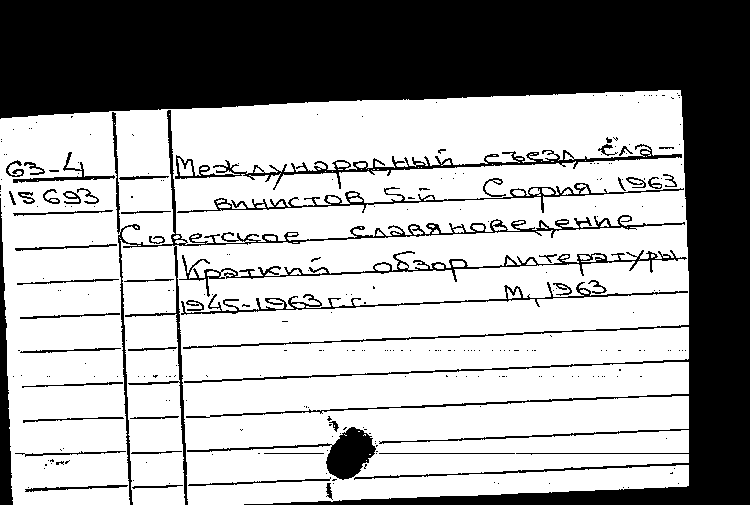 63-4 Международный съезд сла-
18693 винистов, 5-й София. 1963
Советское славяноведение.
Краткий обзор литературы
1945-1963 г.г. М., 1963